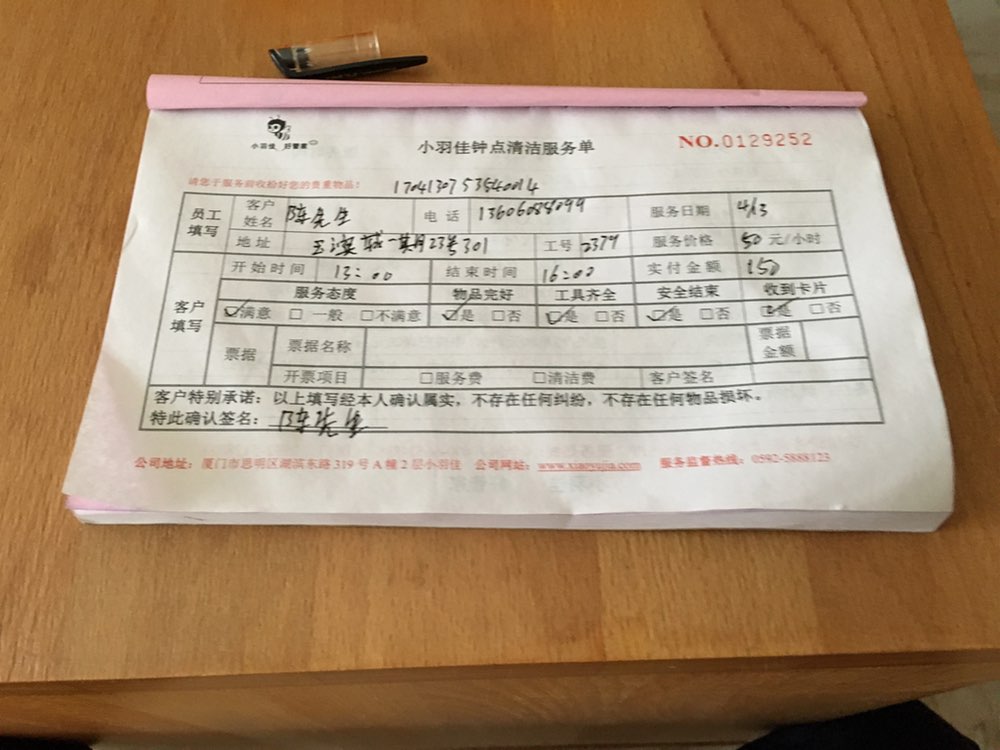 小羽佳 好管家
小羽佳钟点清洁服务单
NO.0129252
请您于服务前收拾好您的贵重物品！ 1704130753540014
员工填写 客户姓名 陈先生 电话 13606088099 服务日期 4/13
地址 一期23号301 工号 2379 服务价格 50 元/小时
客户填写 开始时间 13:00 结束时间 16:00 实付金额 150
服务态度 物品完好 工具齐全 安全结束 收到卡片
☑满意 □一般 □不满意 ☑是 □否 ☑是 □否 ☑是 □否 ☑是 □否
票据 票据名称 票据金额
开票项目 □服务费 □清洁费 客户签名
客户特别承诺：以上填写经本人确认属实，不存在任何纠纷，不存在任何物品损坏。
特此确认签名：陈先生
公司地址：厦门市思明区湖滨东路 319 号 A 幢 2 层小羽佳 公司网站：www.xiaoyujia.com 服务监督热线：0592-5888123